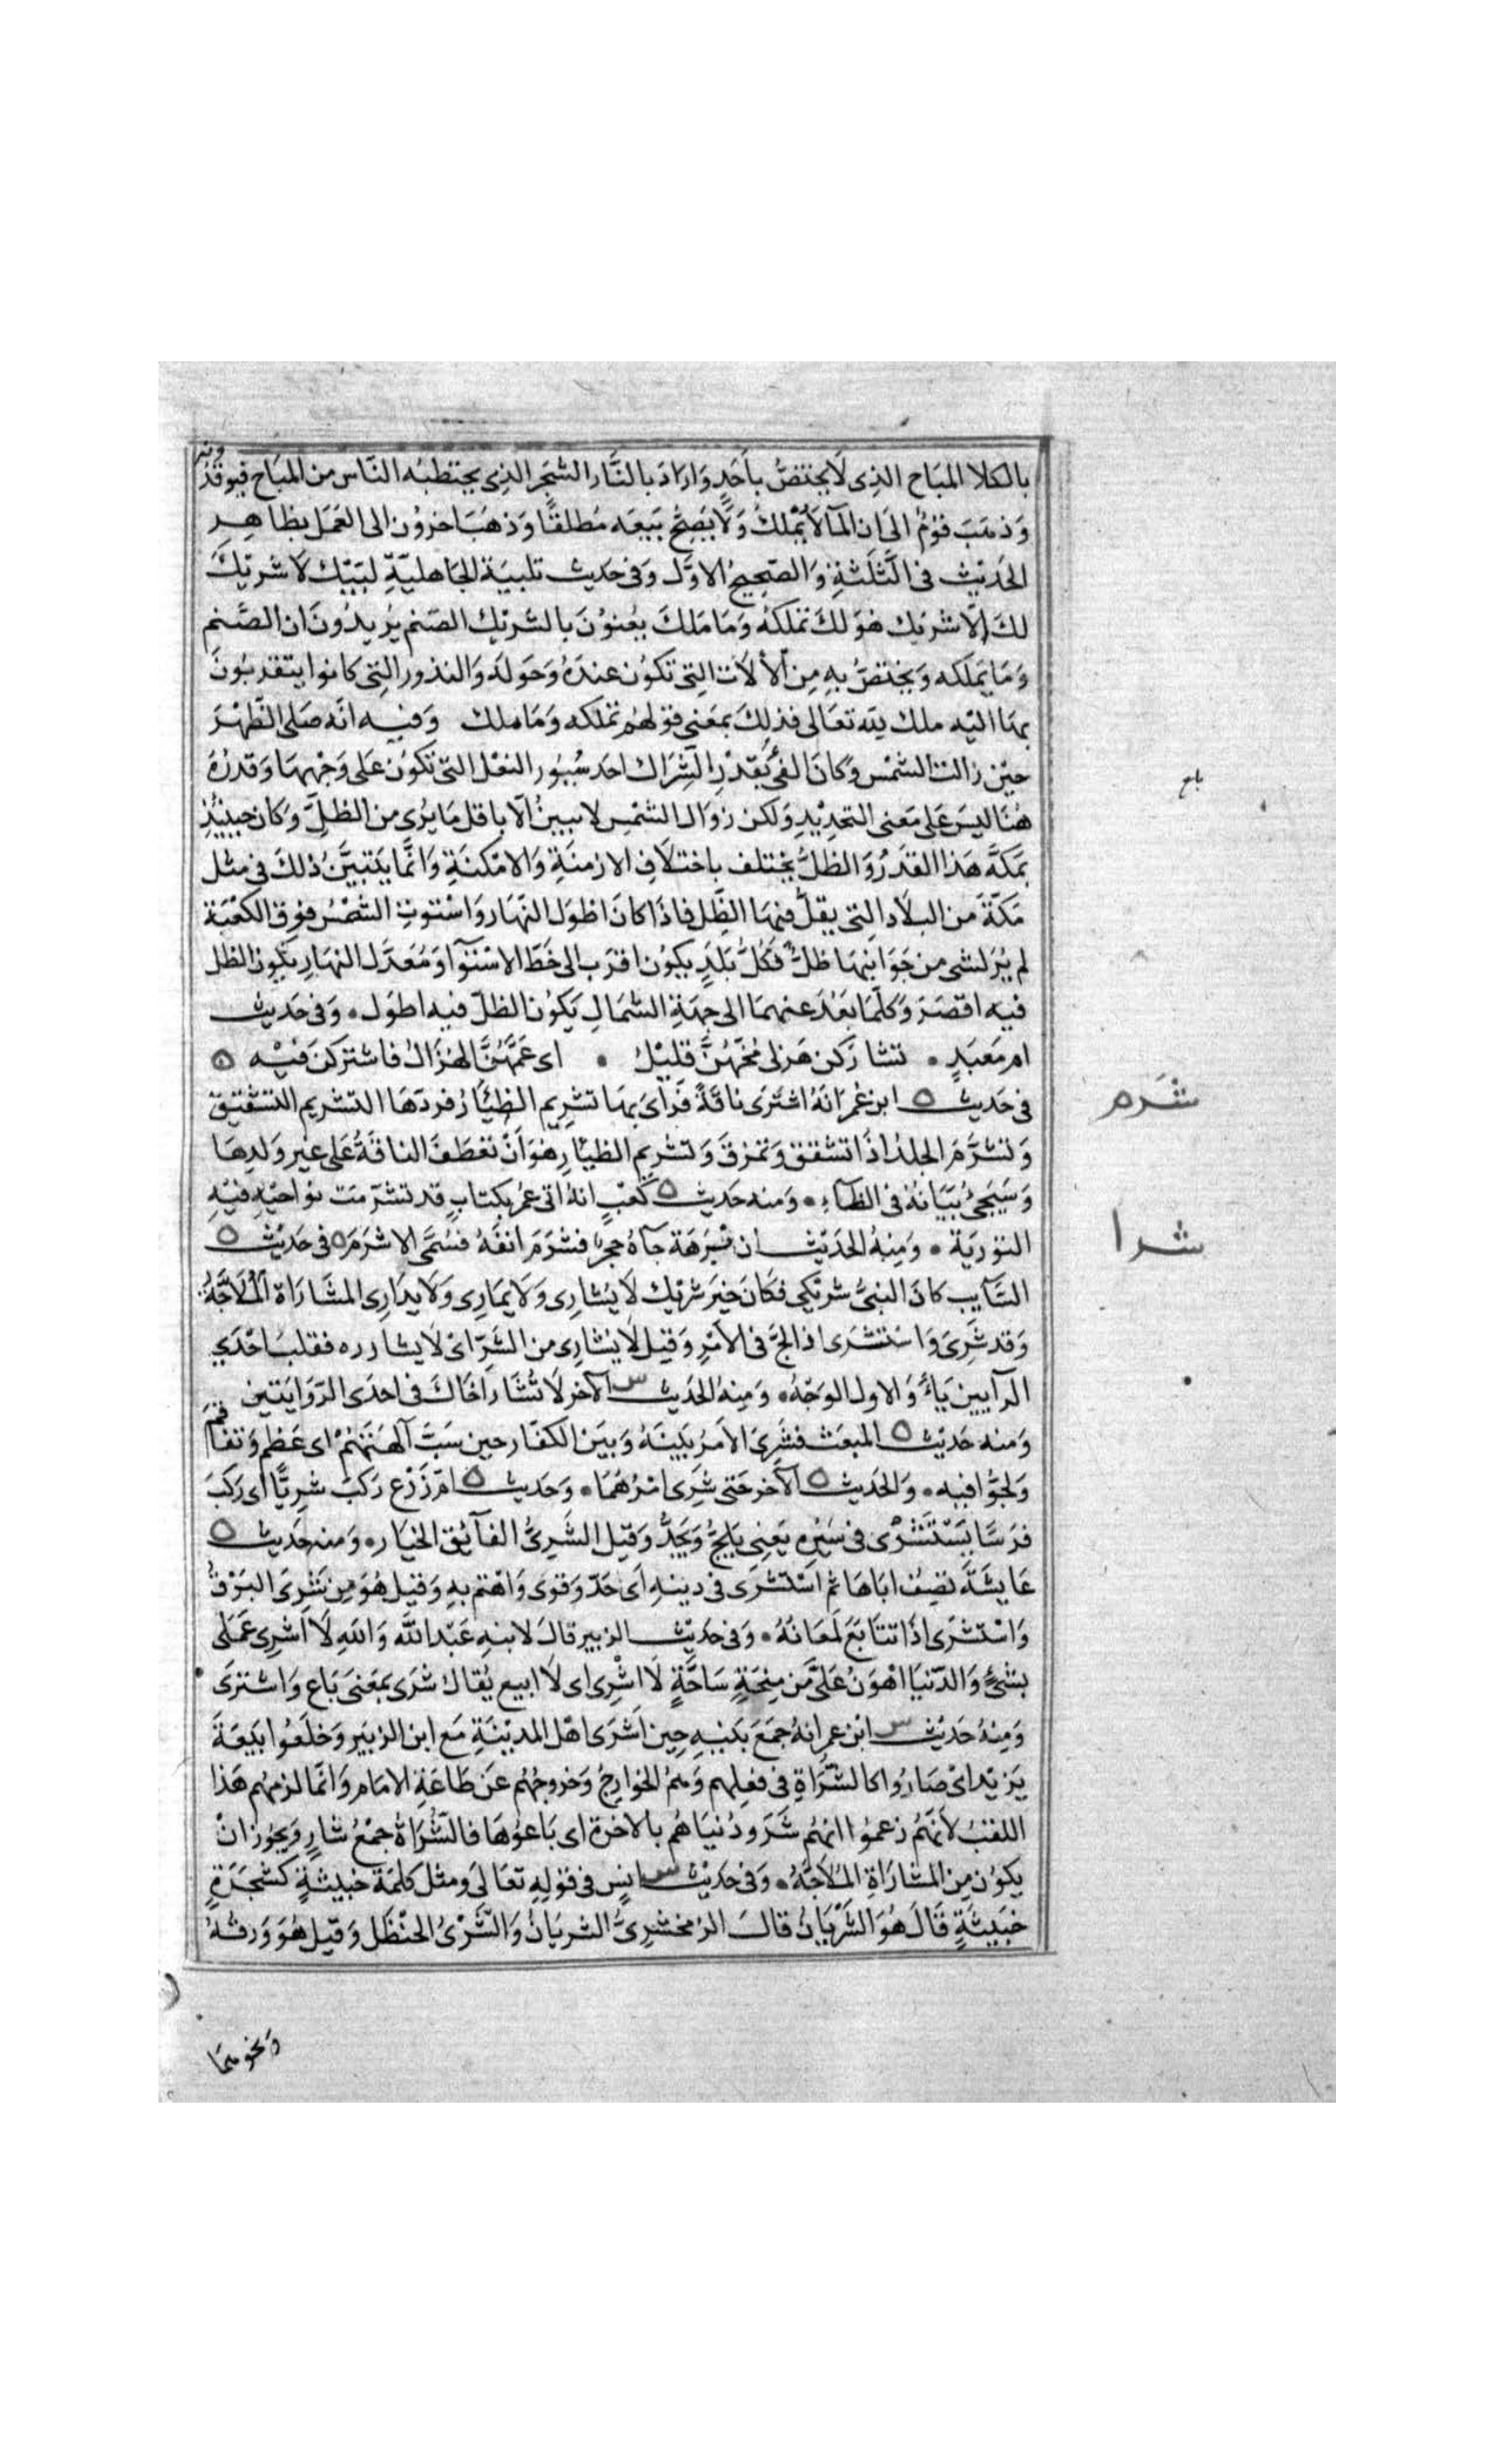 بالكلا المبَاح الذِى لَا يختصُّ بأحَدٍ وَارَادَ بالنَّار الشجَر الذِى يحتطبُه النّاس من المبَاح فيوقدُ ونه
وَذهَبَ قوْمٌ الىَ ان المآ لَا يُمْلَكُ وَلَا يَصِحُّ بَيعَه مُطلقًا وَذهَبَ اخرُون الى العَمَل بظاهِرِ
الحَديْث فى الثَّلَثةِ وَالصَّحِيحُ الاوّل وَفى حَديث تلبيَة الجَاهليَّةِ لبَيْك لَا شرِيْكَ
لكَ اِلّا شرِيْك هُوَ لكَ تملكهُ وَمَا مَلكَ يعْنُوْنَ بالشرِيْك الصَنم يُرِيدُونَ ان الصَّنم
وَمَا يَملكه وَيختصُّ بهِ مِنَ الْألَات التِى تكُون عندَهُ وَحَولهُ وَالنذور التِى كانوا يتقربُونَ
بهَا اليْه ملك لله تعَالى فذلِكَ بمعَنى قوْلهُم تملكه وَمَا ملك وَفيه انّه صَلى الظّهْرَ
حيْن زالت الشمْس وَكانَ الفئُ بقَدْرِ الشِرَاك احَد سُيُور النعْل التى تكوُن عَلى وَجْههَا وَقدرُهُ
هُنَا ليسَ عَلى مَعنى التحدِيْدِ وَلكن زوَال الشمْسِ لا يبينُ الّا باقل مَا يُرى من الظلِّ وَكان حينئذٍ
بمكَّة هَذا القدَرُ وَالظلُّ يختلف باختلَافِ الازمنَةِ وَالامْكنَةِ وَانَّما يَتبيَّنُ ذلكَ فى مثل
مَكةَ من البلَاد التِى يقلُّ فيهَا الظِّل فاذَا كانَ اطوَل النّهَار وَاسْتوتِ الشمْسُ فوق الكعْبَة
لم يُرَ لشى من جَوَانبهَا ظلٌّ فَكُلُّ بَلَدٍ يكوُن اقرَب الى خَطّ الاسْتِوآ وَمُعَدّل النهَارِ يكُون الظل
فيه اقصَرَ وَكلّمَا بَعُدَ عنهمَا الى جِهَةِ الشمَالِ يَكوُن الظلّ فيه اطوَل ۰ وَفى حَديث
ام مَعبَدٍ ۰ تشارَكن هَزلى مُخّهُنَّ قليْلُ ۰ اى عَمَّهُنَّ الهُزَالُ فاشترَكنَ فيْه ه
فى حَديث ه ابن عُمر انَهُ اشترَى ناقَةً فَرَأى بهَا تشرِيم الظِئَار فردّهَا التشرِيم التشقيق
وَتشرَّمَ الجلدُ اذَا تشقق وَتمزقَ وَتشرِيم الظئار هُوَ انْ تعَطفَ الناقةُ عَلى غير وَلدِهَا
وَسَيَجئُ بيَانُهُ فى الظآءِ ۰ وَمنه حَديث ه كَعْبٍ انهُ اتى عمُر بكتابٍ قد تشرّمت نواحيْهِ فيْهِ
التورَية ۰ وَمِنهُ الحَديْث ان ابْرَهَة جآهُ حجرٌ فشرَمَ انفَهُ فسُمّى الاشرَمَ ه فى حَديْث ه
السَّآيب كانَ النبىُّ شرِيْكى فكَانَ خيرَ شرِيْك لَا يُشارِى وَلَا يمَارِى وَلَا يدَارِى المشَارَاة المُلَاجَّةُ
وَقد شَرِىَ وَاسْتشرَى اذا لجَّ فى الامْرِ وَقيل لَا يُشارِى من الشَرِّ اىْ لَا يشارره فقلبَ احْدَي
الرآيين يَآءً وَالاول الوَجْهُ ۰ وَمِنهُ الحَديث س الآخر لَا تُشَار اَخَاكَ فى احدَى الرّوَايَتين
وَمنه حَديْث ه المبعَث فشَرِىَ الامرُ بَينَهُ وَبيَن الكفّار حين سَبَّ آلهتَهُمْ اى عَظم وَتفاقم
وَلجُّوا فيه ۰ وَالحَديث ه الآخر حَتى شَرِى امْرُهُمَا ۰ وَحَديث ه ام زَرْع رَكبَ شرِيًّا اى رَكبَ
فرَسًا يَسْتَشْرِى فى سَيْرِه يعَنِى يَلجُّ وَيَجِدُّ وَقيل الشَرِىُّ الفآئق الخيَار ۰ وَمنه حَديث ه
عَايشَةَ تصِفُ ابَاهَا ثم اسْتشرَى فى دينهِ اَى جَدّ وَقوى وَاهْتم بهِ وَقيل هُوَ مِن شرِىَ البَرْقُ
وَاسْتشرَى اذَا تتَابَعَ لمعَانَهُ ۰ وَفى حَديْث الزبير قالَ لابنهِ عَبْد اللهِ وَاللهِ لَا اَشرِى عَملى
بشئٍ وَالدّنيَا اهْوَنُ عَلىَّ مِن مِنحَةٍ سَاحَّةٍ لَا اشْرِى اى لَا ابيع يُقالُ شرَى بمعَنى بَاع وَاشترَى
وَمِنهُ حَديْث س ابن عمر انهُ جمَعَ بَنيْهِ حِين اَشرَى اهْل المديْنَةِ مَع ابن الزبَيرِ وَخلَعُوا بَيعَةَ
يَزيْد اىْ صَارُوا كالشُّرَاةِ فى فعِلهم وَهمُ الخوَارِجُ وَخروجُهُم عَن طَاعَةِ الامَام وَانّما لزمهُم هَذا
اللقبُ لأنّهَمُ زعمُوا انهُم شَرَو دُنيَاهُم بالاخرَة اى بَاعوُهَا فالشُرَاةُ جمْعُ شارٍ وَيجُوز انْ
يكوُن مِن المشارَاةِ المُلاجَّةُ ۰ وَفى حَديْث س انسٍ فى قوْلِهِ تعَالىَ ومثل كلمَة خبيثةٍ كشجَرَةٍ
خبَيثَةٍ قَالَ هُوَ الشَرْيَانُ قالَ الزمخشرِىُّ الشريَانُ وَالشَّرْىُ الحَنْظَل وَقيل هُوَ وَرقهُ
باع
شرم
شرا
وَنحوهمَا